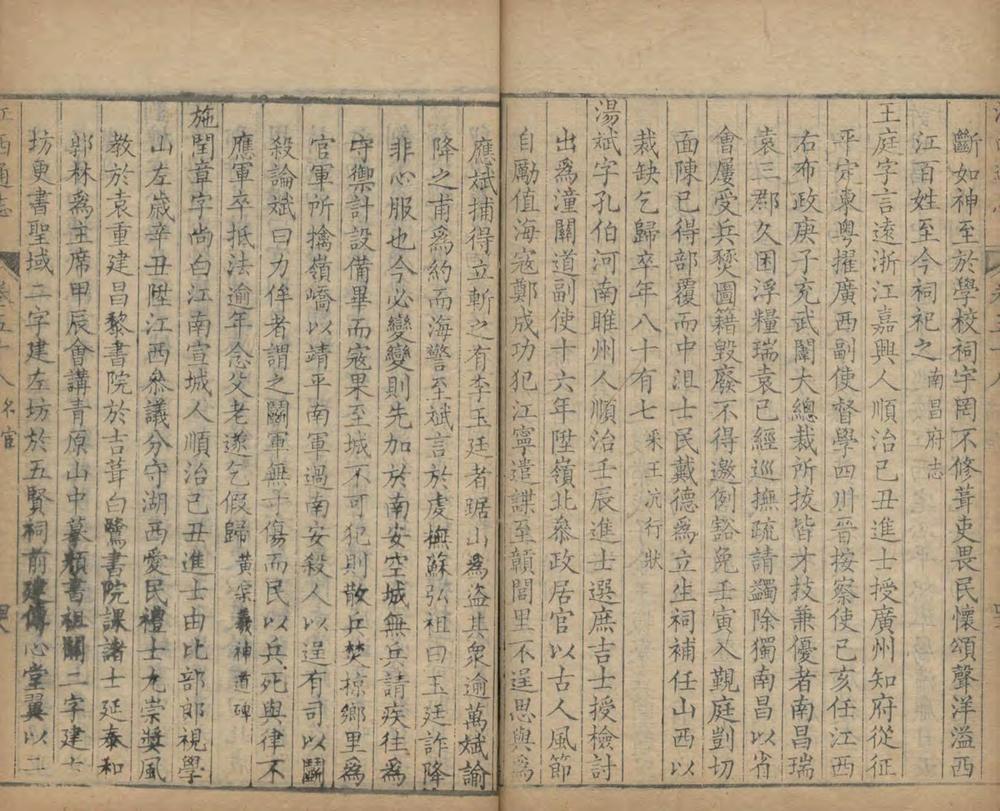 斷如神至於學校祠宇罔不修葺吏畏民懷頌聲洋溢西
江百姓至今祠祀之南昌府志
王庭字言遠浙江嘉興人順治己丑進士授廣州知府從征
平定東粤擢廣西副使督學四川晉按察使己亥任江西
右布政庚子充武闈大總裁所拔皆才技兼優者南昌瑞
袁三郡久困浮糧瑞袁已經巡撫疏請蠲除獨南昌以省
會屢受兵燹圖籍毀廢不得邀例豁免壬寅入覲庭剴切
面陳已得部覆而中沮士民戴德爲立生祠補任山西以
裁缺乞歸卒年八十有七釆王沆行狀
湯斌字孔伯河南睢州人順治壬辰進士選庶吉士授檢討
出爲潼關道副使十六年陞嶺北叅政居官以古人風節
自勵值海寇鄭成功犯江寧遣諜至贛閭里不逞思與爲
應斌捕得立斬之有李玉廷者踞山爲盜其衆逾萬斌諭
降之甫爲約而海警至斌言於虔撫蘇弘祖曰玉廷詐降
非心服也今必變變則先加於南安空城無兵請疾往爲
守禦計設備畢而寇果至城不可犯則散兵焚掠鄉里爲
官軍所擒嶺嶠以靖平南軍過南安殺人以逞有司以鬭
殺論斌曰力侔者謂之鬭軍無寸傷而民以兵死與律不
應軍卒抵法逾年念父老遂乞假歸黄宗羲神道碑
施閏章字尚白江南宣城人順治己丑進士由比部郎視學
山左歲辛丑陞江西叅議分守湖西愛民禮士尤崇奬風
教於袁重建昌黎書院於吉葺白鷺書院課諸士延泰和
郭林爲主席甲辰會講青原山中摹頪書祖關二字建七
坊更書聖域二字建左坊於五賢祠前建傳心堂翼以二
江西通志
卷五十八名宦